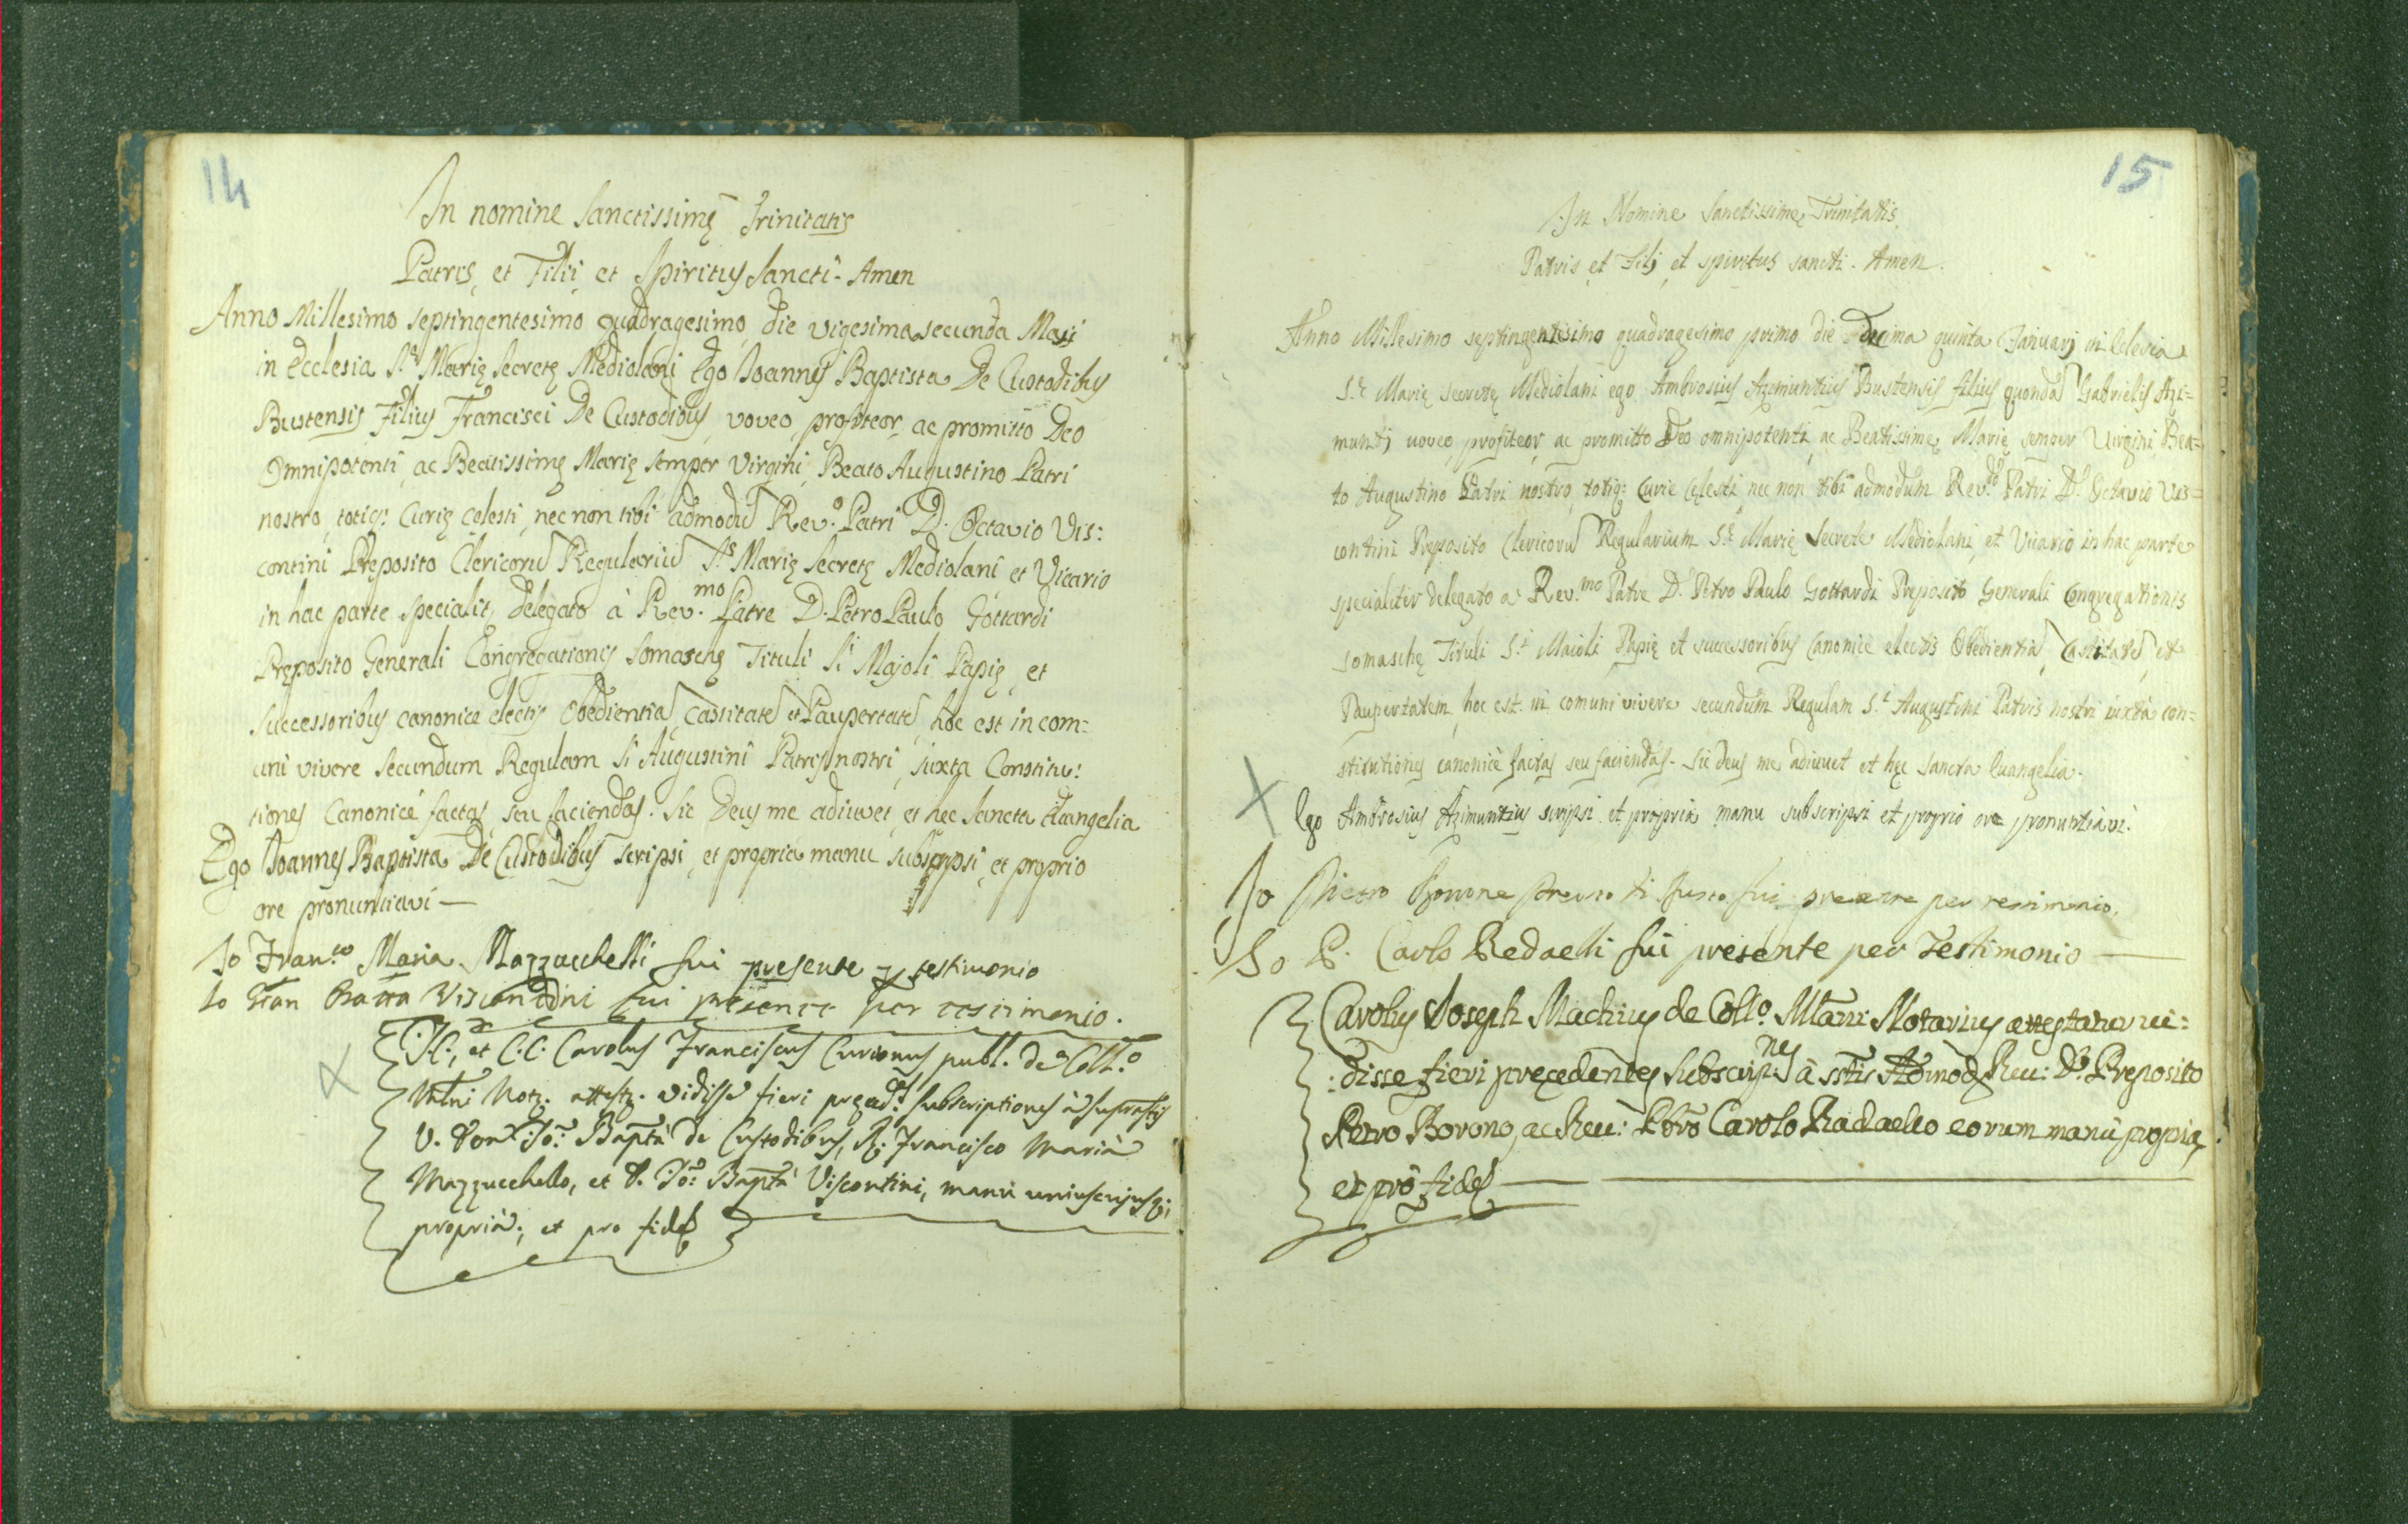 14
In nomine Sanctissimę Trinitatis
Patris, et Filii, et Spiritus Sancti - Amen
Anno Millesimo septingentesimo quadragesimo, die vigesima secunda Maii
in Ecclesia S.ę Marię Secretę Mediolani Ego Joannes Baptista De Custodibus
Bustensis Filius Francisci De Custodibus, voveo, profiteor, ac promitto Deo
Omnipotenti, ac Beatissimę Marię semper Virgini, Beato Augustino Patri
nostro, totiq: Curię celesti, nec non tibi admodũ Rev.º Patri D. Octavio Vis:
contini Pręposito Clericorũ Regulariũ S.ę Marię Secretę Mediolani et Vicario
in hac parte specialit, delegato à Rev.mo Patre D. Petro Paulo Gottardi
Pręposito Generali Congregationis Somaschę Tituli Si Majoli Papię, et
Successoribus canonice electis Obedientiã, Castitatẽ et Paupertatẽ, hoc est in com:
uni vivere secundum Regulam Si Augustini Patris nostri, juxta Constitu:
tiones Canonicè factas, seu faciendas. Sic Deus me adiuvet, et hec Sancta Evangelia
Ego Joannes Baptista De Custodibus scripsi, et propria manu subscripsi, et proprio
ore pronuntiavi —
Io Fran.co Maria Mazzucchelli fui presente p testimonio
Io Gian Batta Viscontini fui presente per testimonio.
J.C., et C.C. Carolus Franciscus Curionus publ. de Coll.º
Mlni Notz. attestz. vidisse fieri preced.es subscriptiones à suprastis
V. Don Jo: Bapta de Custodibus, R. Francisco Maria
Mazzucchello, et D. Jo: Bapta Viscontini, manu uniuscujusq;
propria; et pro fide
15
In Nomine Sanctissime Trinitatis.
Patris et Filij et spiritus sancti. Amen.
Anno Millesimo septingentesimo quadragesimo primo die Decima quinta Januarj in Eclesia
S.ę Marię secretę Mediolani ego Ambrosius Azimuntius Bustensis filius quondã Gabrielis Azi=
muntj uoveo, profiteor, ac promitto Deo omnipotenti, ac Beatissime, Marię semper Uirgini, Bea=
to Augustino Patri nostro, totiq: Curie Celesti, nec non tibi admodum Rev.do Patri D. Octavio Vis=
contini Preposito Clericorũ Regularium S.ę Marię Secrete Mediolani, et Uicario in hac parte
specialiter delegato a Rev.mo Patre D. Petro Paulo Gottardi Preposito Generali Congregationis
somaschę Tituli S.i Maioli Papię et successoribus Canonice electis Obedientiã, Castitatẽ, et
Paupertatem, hoc est in comuni vivere secundum Regulam S.i Augustini Patris nostri iuxta con=
stitutiones canonicè factas seu faciendas. Sic deus me adiuuet et hęc sancta Euangelia.
Ego Ambrosius Azimuntius scripsi et propria manu subscripsi et proprio ore pronuntiavi.
Io Pietro Borrone fui presente per testimonio.
Io P. Carlo Redaelli fui presente per Testimonio
Carolus Joseph Machius de Coll.º Mlani Notarius attestatur ui:
:disse fieri precedentes subscrip.nes à sstis Admod Reu: D. Preposito
Petro Borono, ac Reu: Pbro Carolo Radaello eorum manu propria,
et pro fide